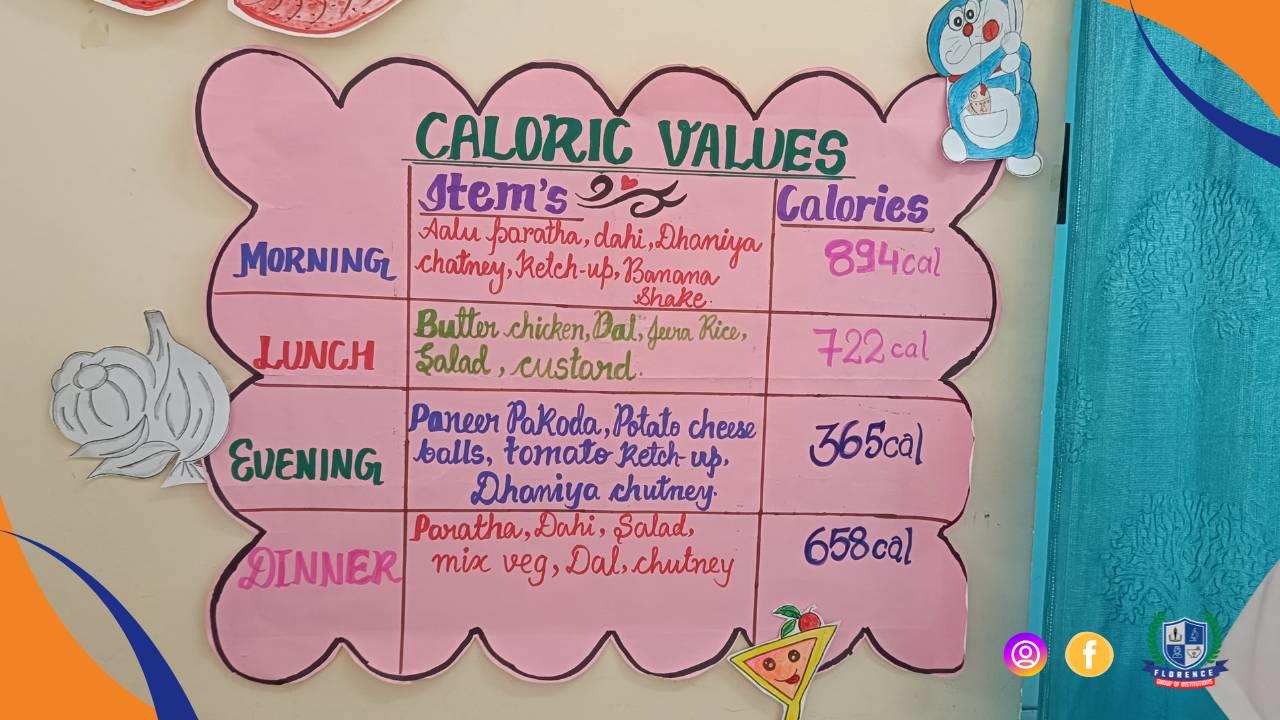 CALORIC VALUES
Item's Calories
MORNING
Aalu paratha, dahi, Dhaniya
chatney, Ketch-up, Banana
Shake.
894cal
LUNCH
Butter chicken, Dal, Jeera Rice,
Salad, custard.
722 cal
EVENING
Paneer Pakoda, Potato cheese
balls, tomato Ketch-up,
Dhaniya chutney.
365cal
DINNER
Paratha, Dahi, Salad,
mix veg, Dal, chutney
658cal
FLORENCE
GROUP OF INSTITUTIONS